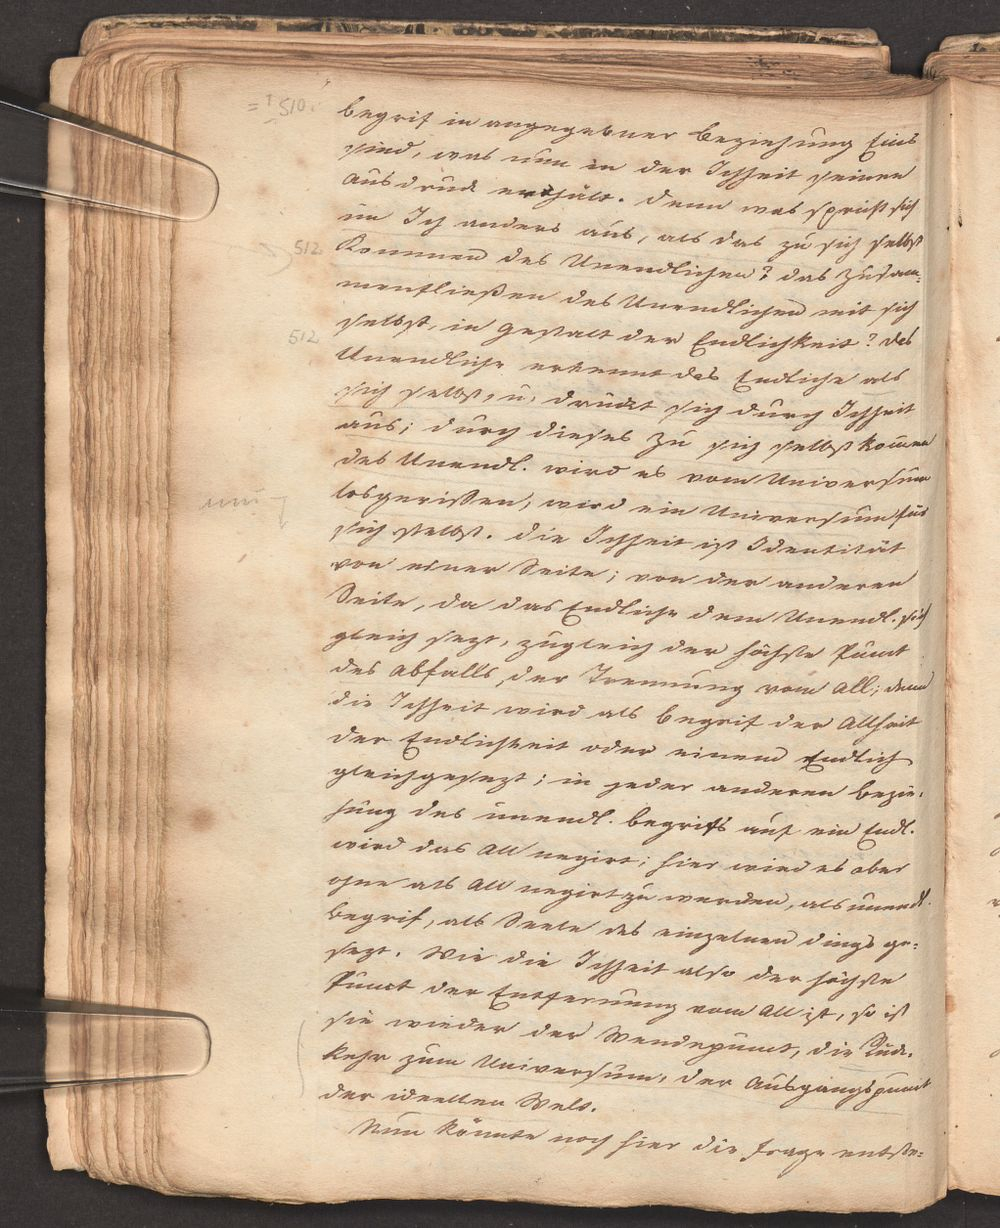 = 510.
begrif in angegebner Beziehung Eins
sind, was nun in der Ichheit seinen
Ausdruck erhält. Denn was spricht sich
im Ich anders aus, als das zu sich selbst
512
Kommen des Unendlichen? das Zusam-
menfließen des Unendlichen mit sich
512
selbst, in Gestalt der Endlichkeit? das
Unendliche erkennt das Endliche als
sich selbst, u. drückt sich durch Ichheit
aus; durch dieses zu sich selbst kommen
des Unendl. wird es vom Universum
losgerissen, wird ein Universum für
sich selbst. Die Ichheit ist Identität
von einer Seite; von der anderen
Seite, da das Endliche dem Unendl. sich
gleich sezt, zugleich der höchste Punct
des Abfalls, der Trennung vom All; denn
die Ichheit wird als Begrif der Allheit
der Endlichkeit oder einem Endlich
gleichgesezt; in jeder anderen Bezie-
hung des unendl. Begrifs auf ein Endl.
wird das All negirt; hier wird es aber
ohne als All negirt zu werden, als unendl.
Begrif, als Seele des einzelnen Dings ge-
sezt. Wie die Ichheit also der höchste
Punct der Entfernung vom All ist, so ist
sie wieder der Wendepunct, die Rük-
kehr zum Universum, der Ausgangspunct
der ideellen Welt.
Nun könnte noch hier die Frage entste-